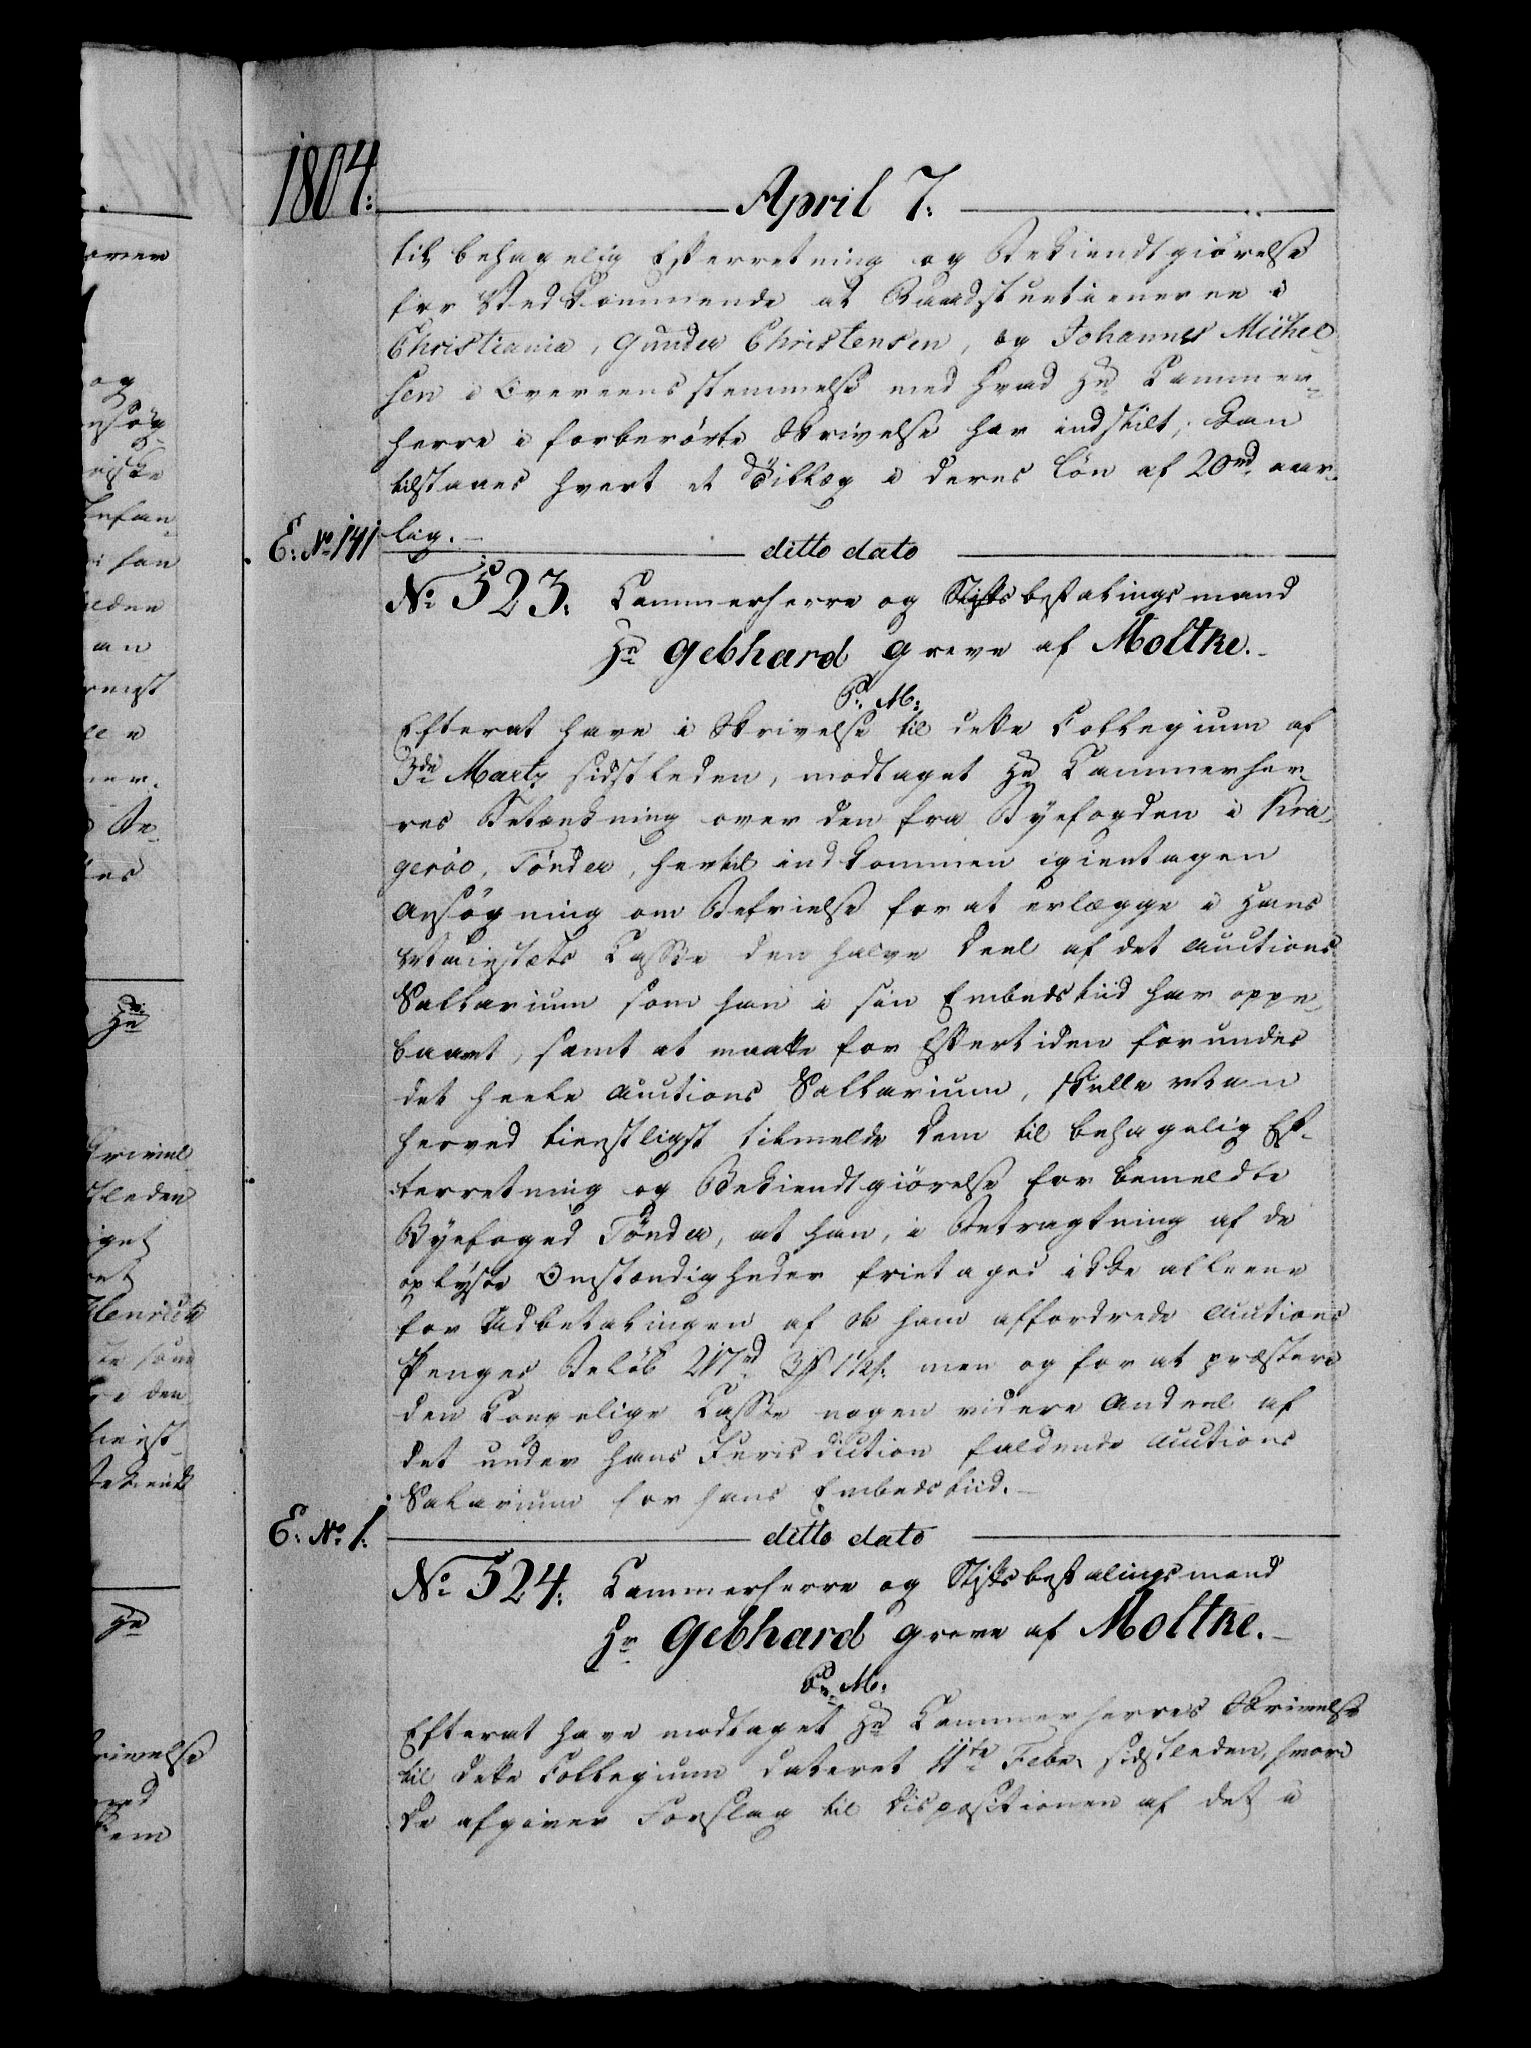 1804.
April 7.
til behagelig Efterretning og Bekiendtgiørelse
for Vedkommende at Raadstuetienerne i
Christiania, Gunder Christensen, og Johannes Michel-
sen i Overeensstemmelse med hvad Hr Kammer-
herre i forberørte Skrivelse har indstilt, kan
tilstaaes hvert et Tillæg i deres Løn af 20rd aar-
lig.
E: No 141
ditto dato
No 523. Kammerherre og Stiftsbefalingsmand
Hr Gebhard Greve af Moltke.
P: M:
Efterat have i Skrivelse til dette Collegium af
3de Marty sidstleden, modtaget Hr Kammerher-
res Betænkning over den fra Byefogden i Kra-
gerøe, Tønder, hertil indkommen igientagen
Ansøgning om Befrielse for at erlægge i Hans
Majestæts Casse den halve Deel af det Auctions
Sallarium som han i sin Embedstiid har oppe-
baaret, samt at maatte for Eftertiden forundes
det heele Auctions Sallarium, skulle Man
herved tienstligst tilmelde Dem til behagelig Ef-
terretning og Bekiendtgiørelse for bemeldte
Byefoged Tønder, at han, i Betragtning af de
oplyste Omstændigheder fritages ikke alleene
for Udbetalingen af de ham affordrede Auctions
Penges Beløb men og for at præstere
den Kongelige Casse nogen videre Andeel af
det under hans Jurisdiction faldende Auctions
Salarium for hans Embedstiid.
E: No 1.
ditto dato
No 524. Kammerherre og Stiftsbefalingsmand
Hr Gebhard Greve af Moltke.
P: M:
Efterat have modtaget Hr Kammerherres Skrivelse
til dette Collegium dateret 11te Febr sidstleden, hvori
De afgiver Forslag til Dispositionen af det i